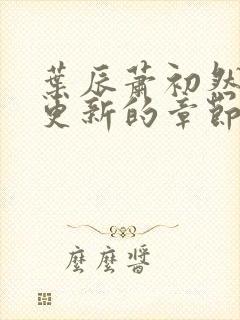 葉辰蕭初然
更新的章節
麼麼醬